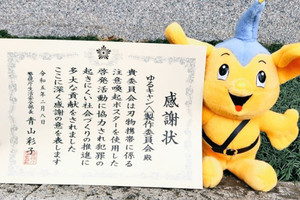 感謝状
ゆるキャン△製作委員会殿
貴委員会は刃物携帯に係る
注意喚起ポスターを使用した
啓発活動に協力され犯罪の
起きにくい社会づくりの推進に
多大な貢献をされました
ここに深く感謝の意を表します
令和五年二月八日
警視庁生活安全部長 青山彩子